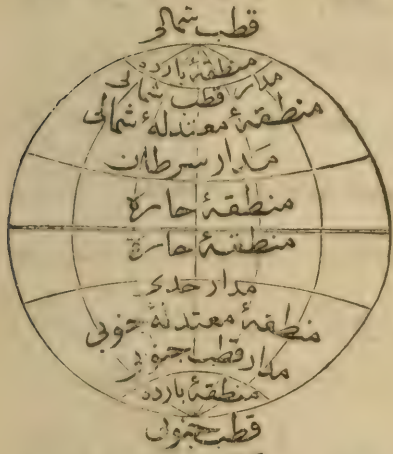 قطب شمالی
منطقهٔ بارده
مدار قطب شمالی
منطقهٔ معتدلهٔ شمالی
مدار سرطان
منطقهٔ حاره
منطقهٔ حاره
مدار جدی
منطقهٔ معتدلهٔ جنوبی
مدار قطب جنوبی
منطقهٔ بارده
قطب جنوبی